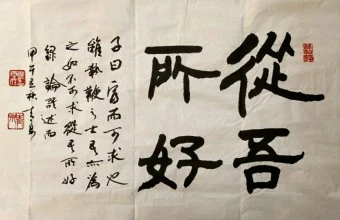 從吾
所好
子曰富而可求也
雖執鞭之士吾亦為
之如不可求從吾所好
錄論語述而
甲午立秋